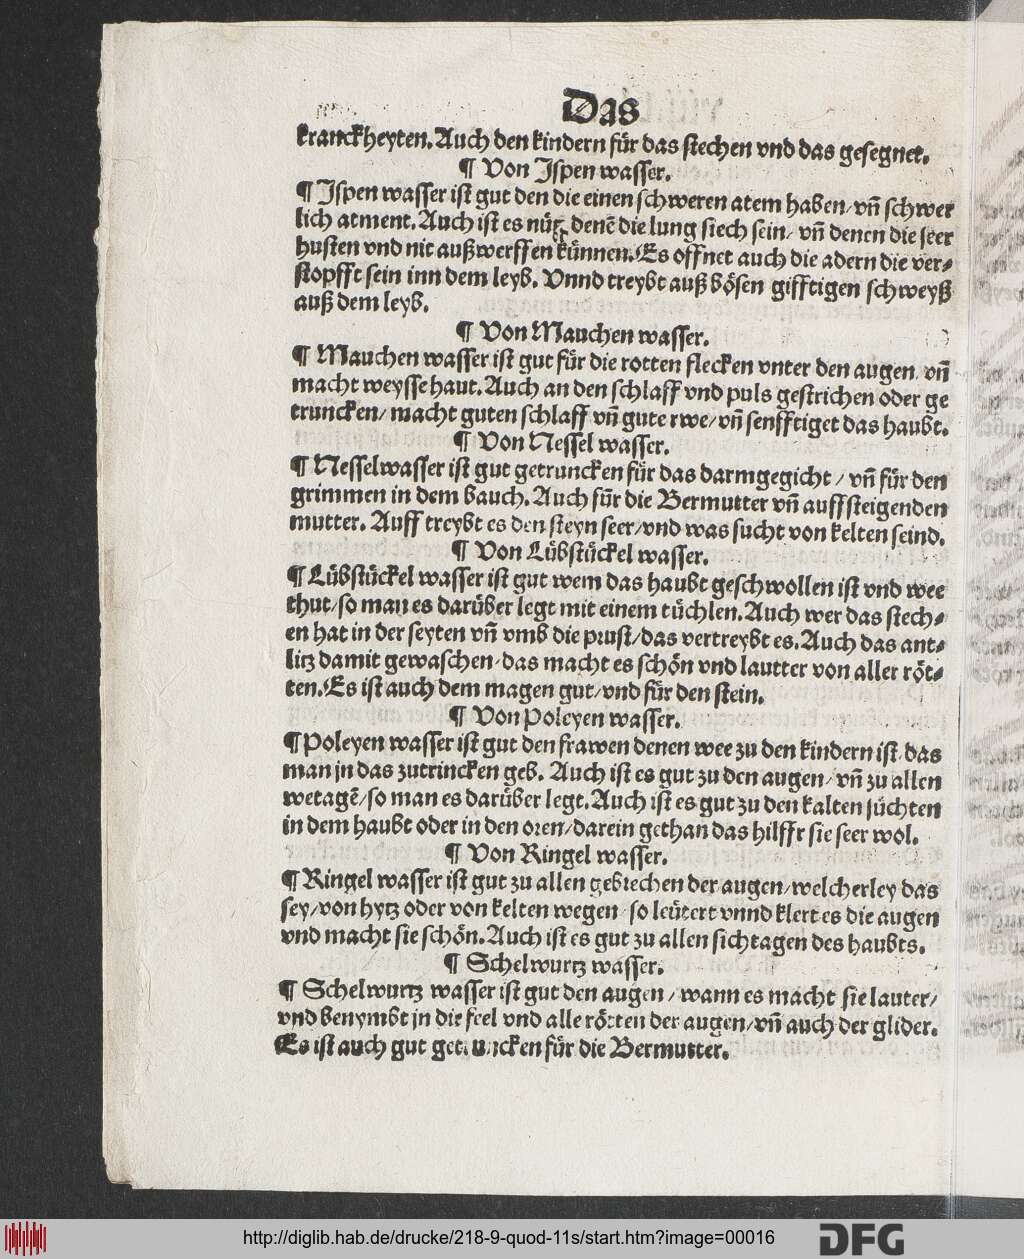 Das
kranckheyten. Auch den kindern für das stechen vnd das gesegnet.
¶ Von Jspen wasser.
¶ Jspen wasser ist gut den die einen schweren atem haben / vn̄ schwer
lich atment. Auch ist es nütz denē die lung siech sein / vn̄ denen die seer
husten vnd nit außwerffen künnen. Es öffnet auch die adern die ver⸗
stopfft sein inn dem leyb. Vnnd treybt auß bösen gifftigen schweyß
auß dem leyb.
¶ Von Mauchen wasser.
¶ Mauchen wasser ist gut für die rotten flecken vnter den augen / vn̄
macht weysse haut. Auch an den schlaff vnd puls gestrichen oder ge
truncken / macht guten schlaff vn̄ gute rwe / vn̄ senfftiget das haubt.
¶ Von Nessel wasser.
¶ Nesselwasser ist gut getruncken für das darmgegicht / vn̄ für den
grimmen in dem bauch. Auch für die Bermutter vn̄ auffsteigenden
mutter. Auff treybt es den steyn seer / vnd was sucht von kelten seind.
¶ Von Lübstückel wasser.
¶ Lübstückel wasser ist gut wem das haubt geschwollen ist vnd wee
thut / so man es darüber legt mit einem tüchlen. Auch wer das stech⸗
en hat in der seyten vn̄ vmb die prust / das vertreybt es. Auch das ant⸗
litz damit gewaschen / das macht es schön vnd lautter von aller röt⸗
ten. Es ist auch dem magen gut / vnd für den stein.
¶ Von Poleyen wasser.
¶ Poleyen wasser ist gut den frawen denen wee zu den kindern ist / das
man jn das zutrincken geb. Auch ist es gut zu den augen / vn̄ zu allen
wetagē / so man es darüber legt. Auch ist es gut zu den kalten süchten
in dem haubt oder in den oren / darein gethan das hilfft sie seer wol.
¶ Von Ringel wasser.
¶ Ringel wasser ist gut zu allen gebrechen der augen / welcherley das
sey / von hytz oder von kelten wegen / so leütert vnnd klert es die augen
vnd macht sie schön. Auch ist es gut zu allen sichtagen des haubts.
¶ Schelwurtz wasser.
¶ Schelwurtz wasser ist gut den augen / wann es macht sie lauter /
vnd benymbt jn die feel vnd alle rötten der augen / vn̄ auch der glider.
Es ist auch gut getruncken für die Bermutter.
http://diglib.hab.de/drucke/218-9-quod-11s/start.htm?image=00016
DFG